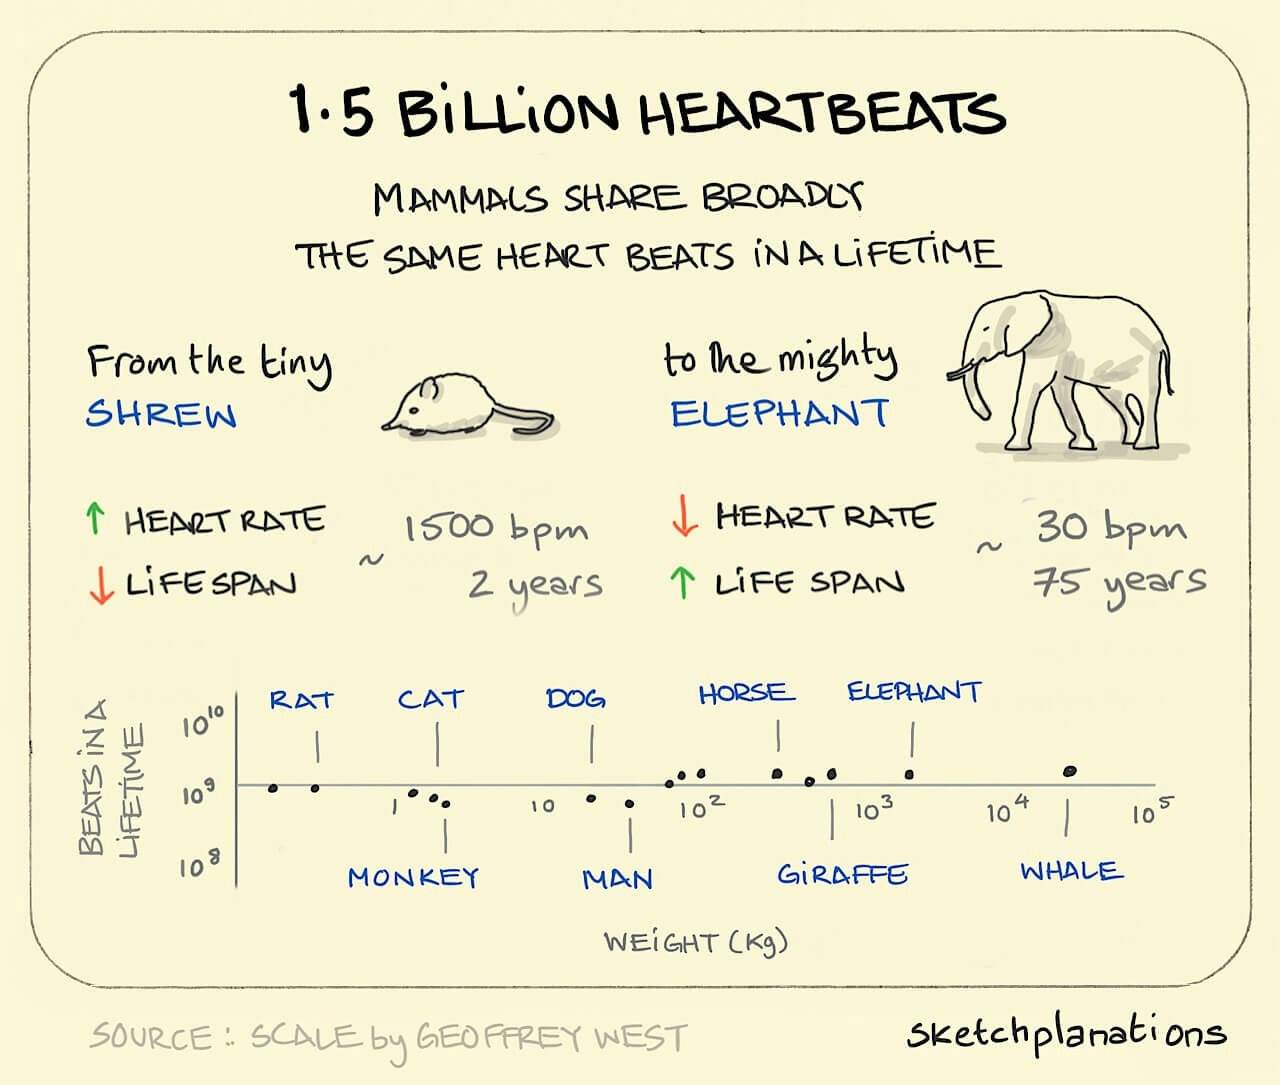 1.5 BiLLiON HEARTBEATS
MAMMALS SHARE BROADLY
THE SAME HEART BEATS iN A LiFETiME
From the tiny
SHREW
to the mighty
ELEPHANT
↑ HEART RATE
↓ LiFE SPAN
~ 1500 bpm
2 years
↓ HEART RATE
↑ LiFE SPAN
~ 30 bpm
75 years
BEATS iN A
LiFETiME
10¹⁰
10⁹
10⁸
RAT CAT DOG HORSE ELEPHANT
1 10 10² 10³ 10⁴ 10⁵
MONKEY MAN GiRAFFE WHALE
WEiGHT (Kg)
SOURCE: SCALE by GEOFFREY WEST
sketchplanations